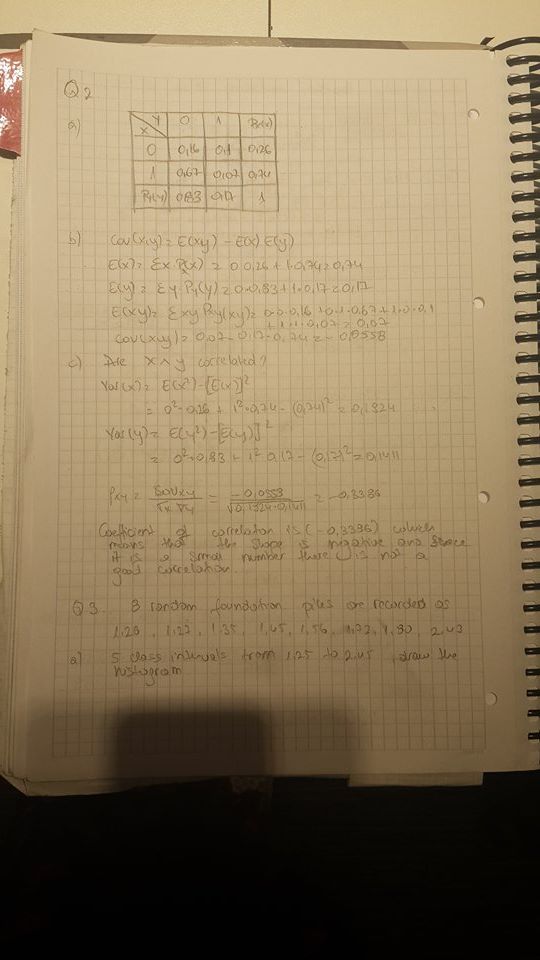 Q2
a)
Y 0 1 Pr(x)
X
0 0,16 0,1 0,26
1 0,67 0,07 0,74
Pr(y) 0,83 0,17 1
b) Cov(x,y) = E(xy) - E(x) E(y)
E(x) = Σx Pr(x) = 0·0,26 + 1·0,74 = 0,74
E(y) = Σy·Pr(y) = 0·0,83 + 1·0,17 = 0,17
E(xy) = Σxy Pxy(xy) = 0·0·0,16 + 0·1·0,67 + 1·0·0,1
+ 1·1·0,07 = 0,07
Cov(x,y) = 0,07 - 0,17·0,74 = - 0,0558
c) Are x ∧ y correlated?
Var(x) = E(x²) - [E(x)]²
= 0²·0,26 + 1²·0,74 - (0,74)² = 0,1924
Var(y) = E(y²) - [E(y)]²
= 0²·0,83 + 1²·0,17 - (0,17)² = 0,1411
ρxy = Covxy / √x √y = -0,0558 / √0,1924·0,1411 = -0,3386
Coefficient of correlation is (-0,3386) which
means that the slope is negative and since
it is a small number there is not a
good correlation.
Q3. 8 random foundation piles are recorded as
1,29, 1,27, 1,35, 1,45, 1,56, 1,72, 1,80, 2,43
a) 5 class intervals from 1,25 to 2,45, draw the
histogram